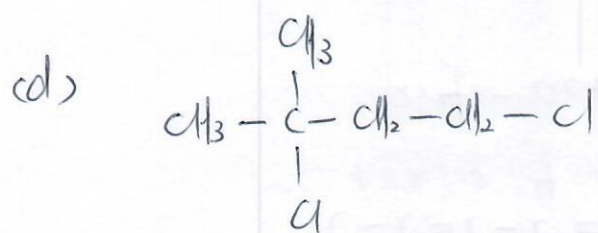 CH3
(d)
CH3 - C - CH2 - CH2 - Cl
Cl